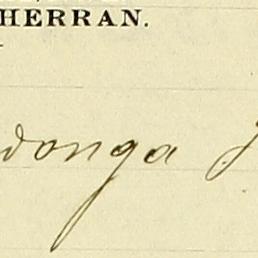 HERRAN.
donga